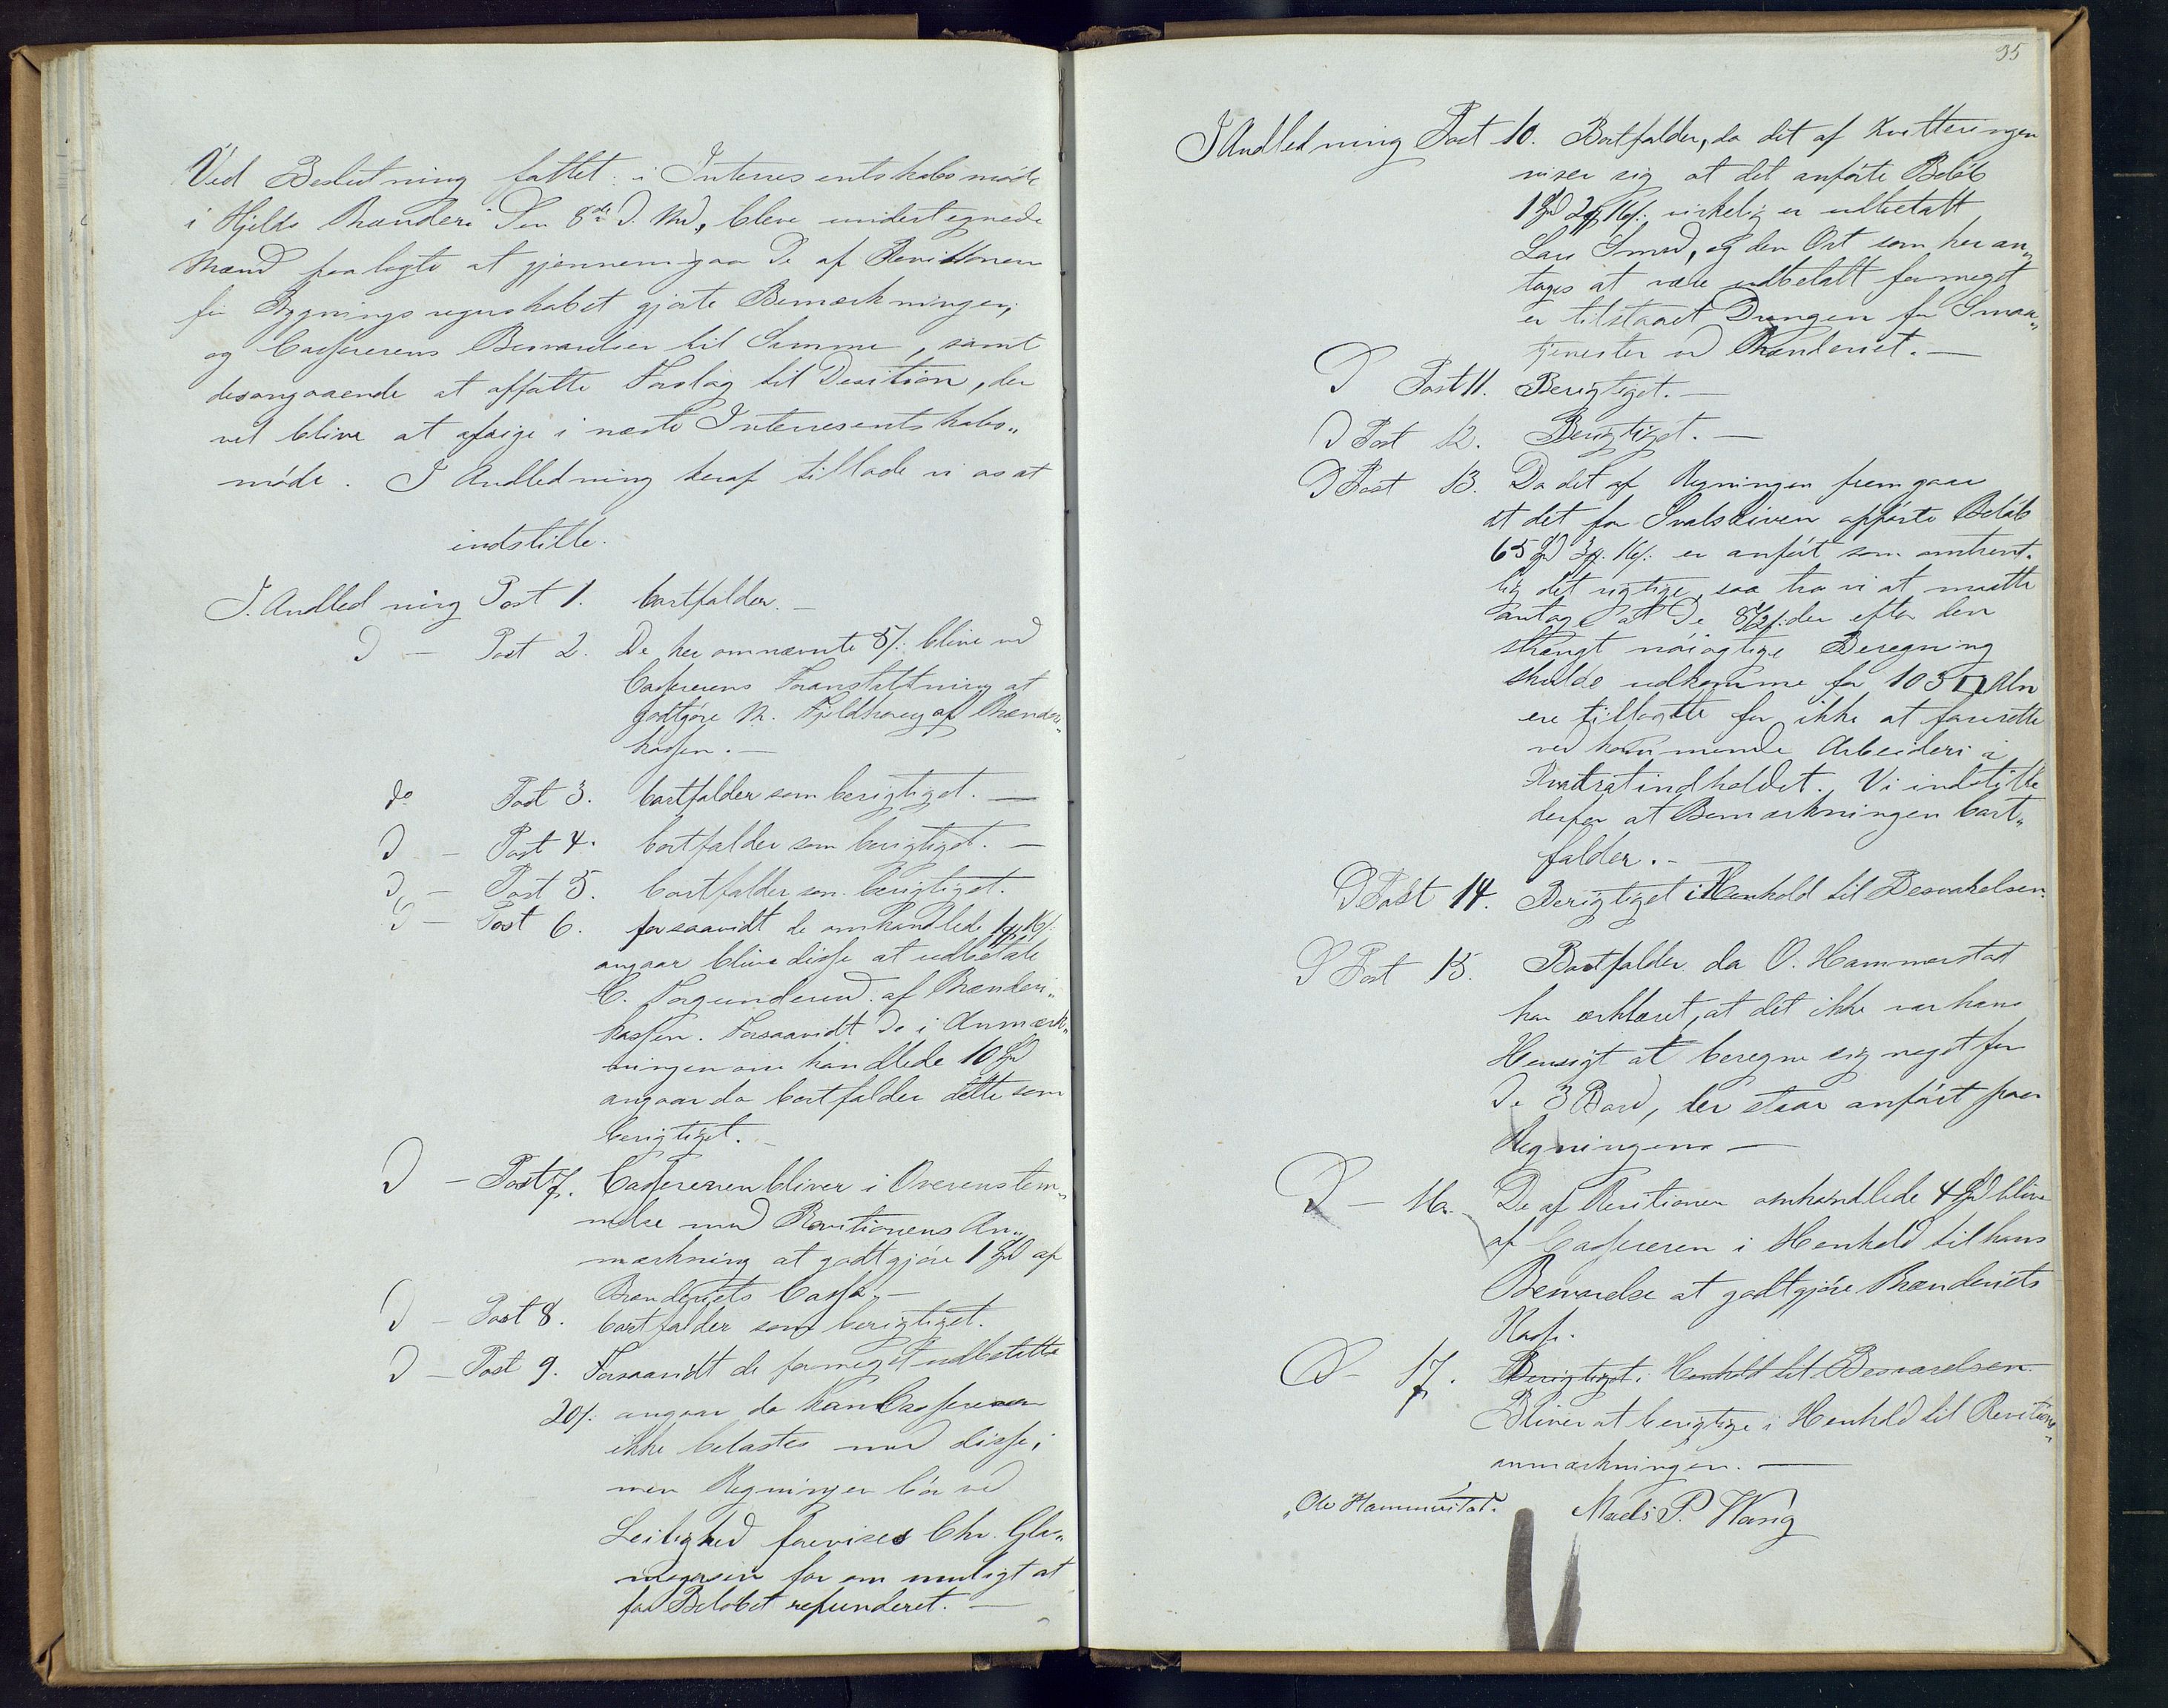 Ved Beslutning fattet i Interresentskabsmöde
i Hjelds Brænderi Den 8de d. Md., bleve undertegnede
Mænd paalagte at gjennemgaa De af Revisionen
for Bygningsregnskabet gjorte Bemærkninger,
og Cassererens Besvarelser til Samme, samt
desangaaende at affatte Forslag til Desition, der
vil blive at afsige i næste Interresentskabs„
möde. I Andledning heraf tillade vi os at
indstille.
I. Andledning Post 1. bortfalder. —
D — Post 2. De her omnævnte 5/: blive ved
Cassererens Foranstaltning at
godtgöre M. Fjeldhoug af Brænderi„
kassen. —
do Post 3. bortfalder som berigtiget. —
D — Post 4. bortfalder som berigtiget. —
D — Post 5. bortfalder som berigtiget.
D — Post 6. forsaavidt de omhandlede 16/:
angaar blive disse at udbetale
C. af Brænderi„
kassen. Forsaavidt De i Anmærk„
ningen omhandlede 10 Spd
angaar da bortfalder dette som
berigtiget. —
D — Post 7. Cassereren bliver i Overenstem„
melse med Revitionens An„
mærkning at godtgjöre 1 Spd af
Brænderiets Cassa. —
D — Post 8. bortfalder som berigtiget.
D — Post 9. Forsaavidt de formeget udbetalte
20/: angaar da kan Cassereren
ikke belastes med disse,
men Regningen bör ved
Leilighed forevises Chr. Gla„
magersen for om muligt at
faa Belöbet refunderet. —
95
I Andledning Post 10. Bortfalder, da det af Kvitteringen
viser sig at det anförte Belöb
1 Spd 2 16/: virkelig er udbetalt
Lars Smed, og den Ort som her an„
tages at være udbetalt formeget
er tilstaaet Drengen for Smaa„
tjenester ved Brænderiet. —
D Post 11. Berigtiget. —
D Post 12. Berigtiget. —
D Post 13. Da det af Regningen fremgaar
at det for Svalskiven opförte Belöb
65 Spd 3 16/: er anfört som omtrent„
lig det rigtige, saa tro vi at maatte
antage at De 8½/: der efter den
strængt nöiagtige Beregning
skulde udkomme for 105 □ Aln
ere tillagte for ikke at forurette
vedkommende Arbeidere i
Kvatratindholdet. Vi indstille
derfor at Bemærkningen bort„
falder. —
D Post 14. Berigtiget i Henhold til Besvarelsen.
D Post 15. Bortfalder da O. Hammerstad
har erklæret, at det ikke var hans
Hensigt at beregne sig noget for
De 3 Bord, der staar anfört paa
Regningerne —
D — 16. De af Revitionen omhandlede 4 Spd blive
af Cassereren i Henhold til hans
Besvarelse at godtgjöre Brænderiets
Kasse.
D — 17. Berigtiget i Henhold til Besvarelsen.
Bliver at berigtige i Henhold til Revitions„
anmærkningen. —
Ole Hammerstad. Mads P. Wang